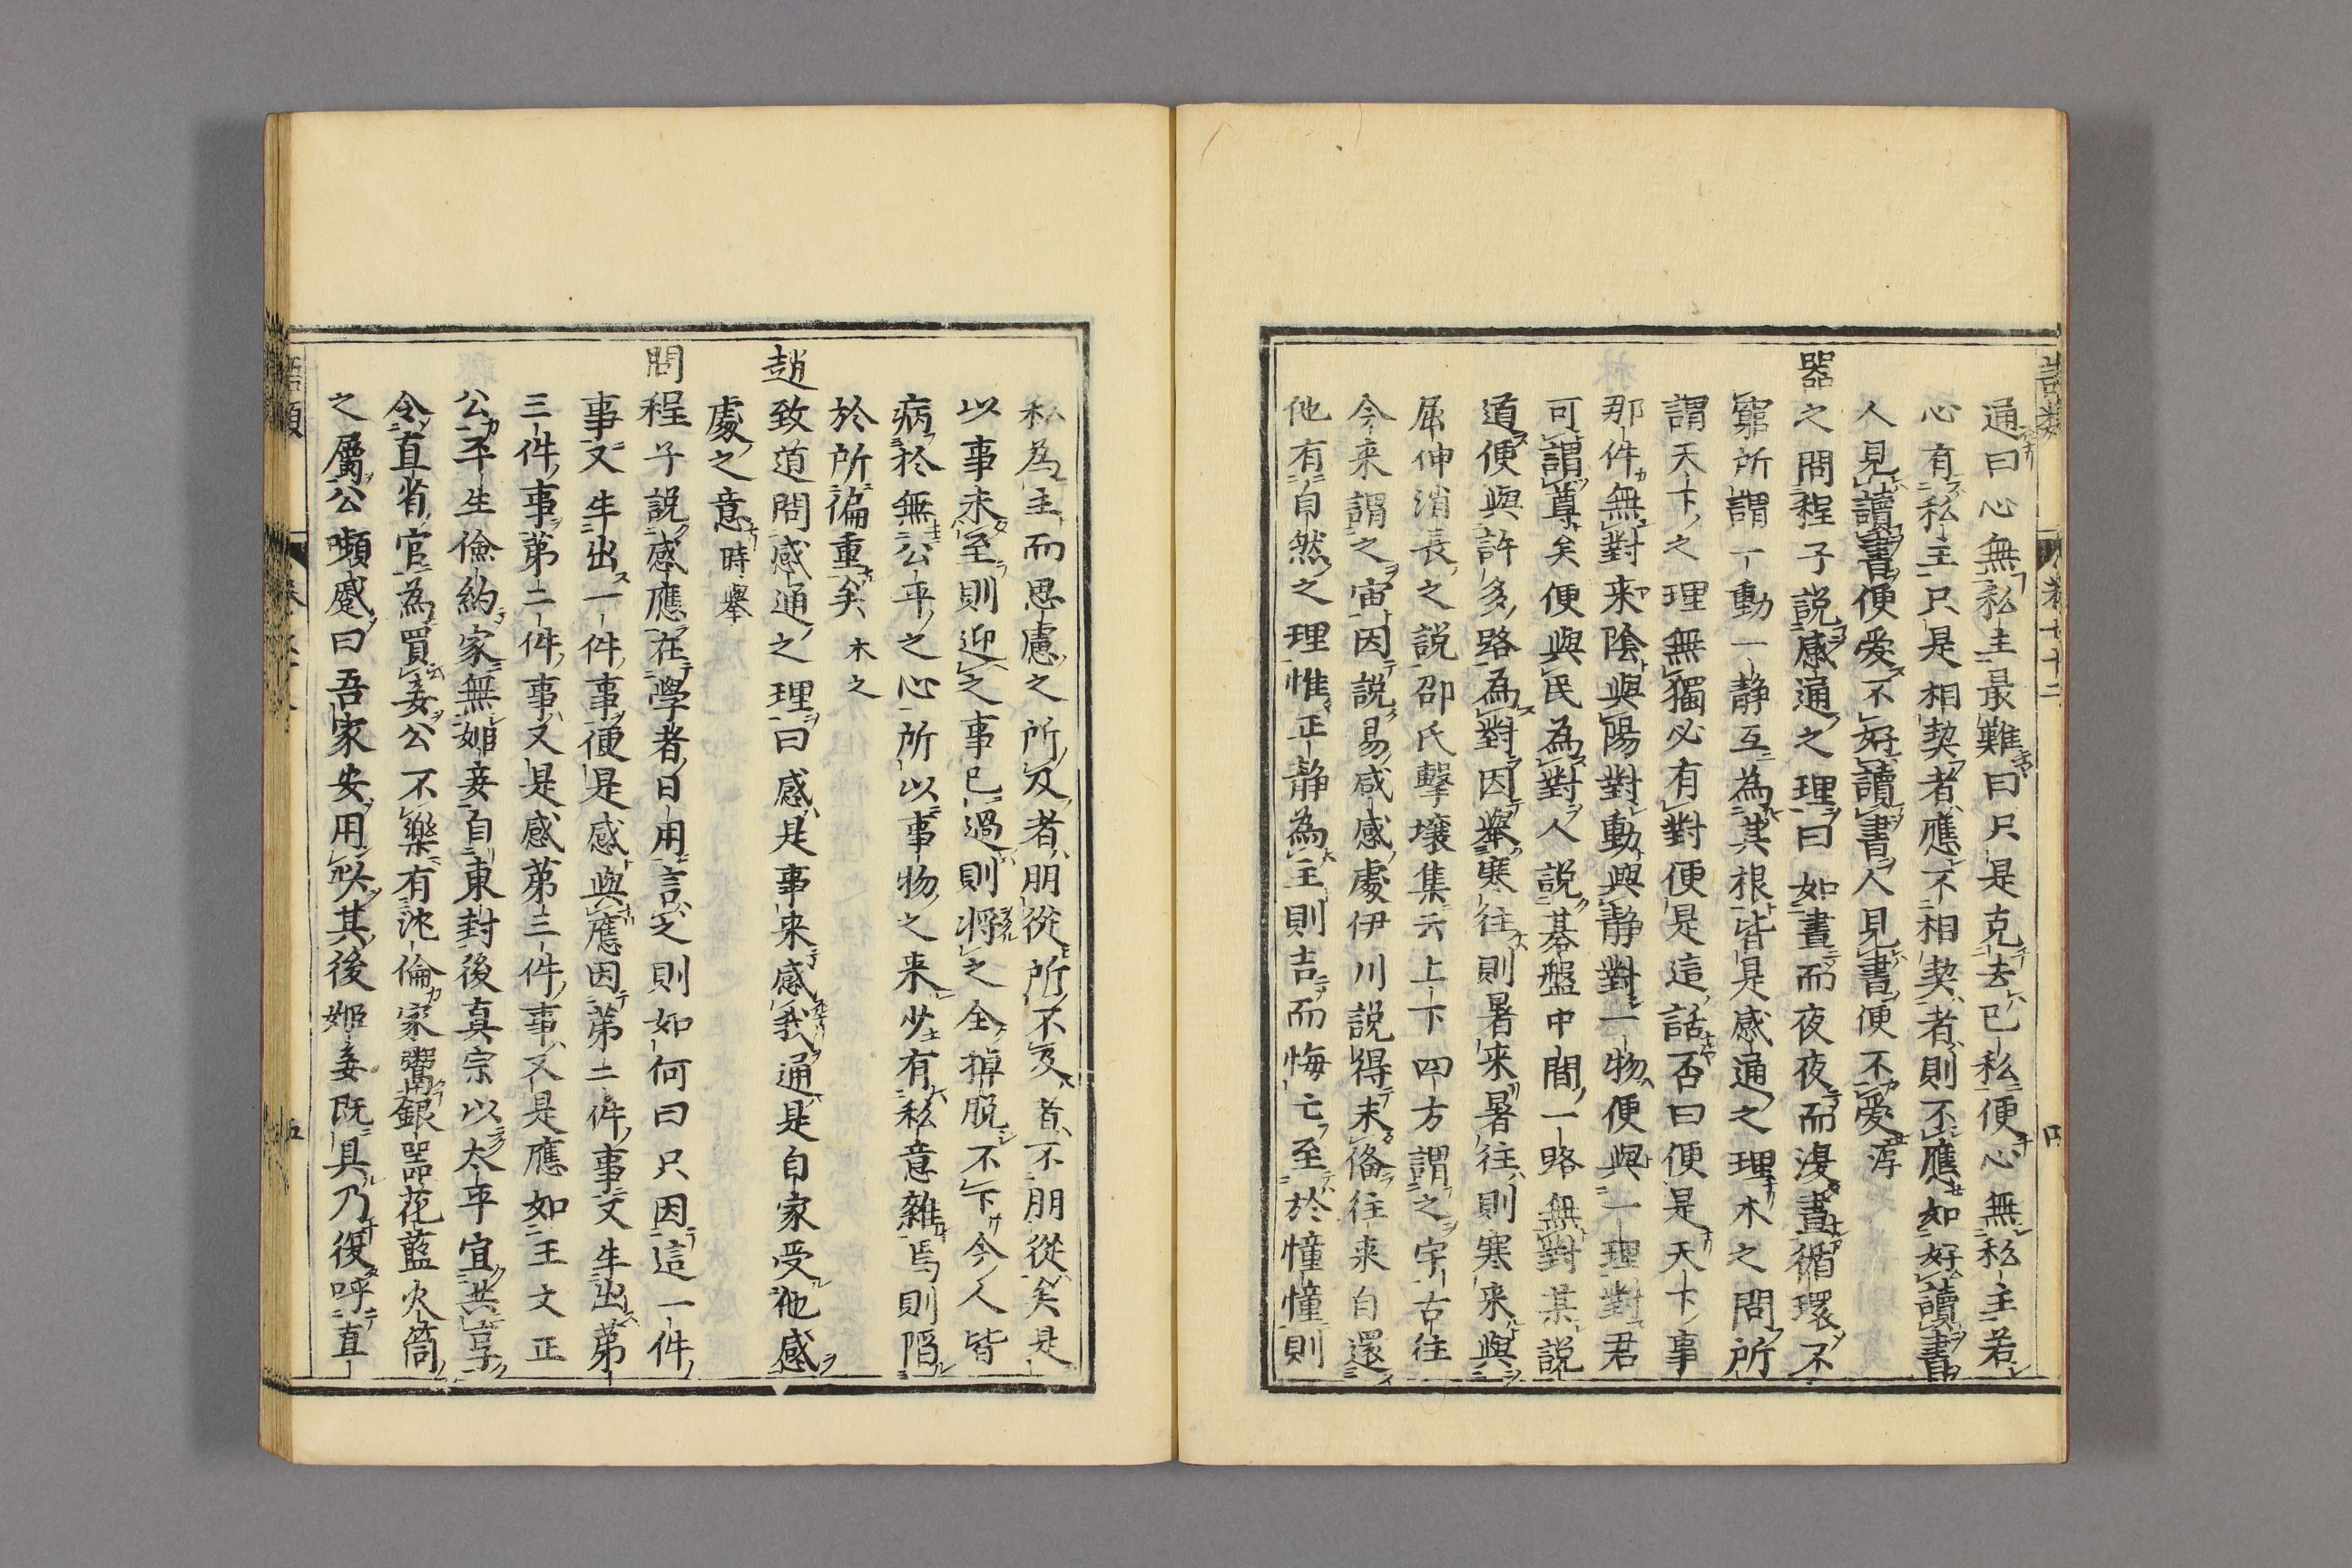 通曰心無私主最難曰只是克去已私便心無私主若
心有私主只是相契者應不相契者則不應如好讀書
人見讀書便愛不好讀書人見書便不愛淳
器之問程子說感通之理曰如晝而夜夜而復晝循環不
窮所謂一動一静互為其根皆是感通之理木之問所
謂天下之理無獨必有對便是這話否曰便是天下事
那件無對来陰與陽對動與静對一物便與一理對君
可謂尊矣便與民為對人說碁盤中間一路無對某說
道便與許多路為對因舉寒往則暑来暑往則寒来與
屈伸消長之說邵氏擊壤集云上下四方謂之宇古往
今来謂之宙因說易咸感處伊川說得未俻往来自還
他有自然之理惟正静為主則吉而悔亡至於憧憧則
私為主而思慮之所及者朋從所不及者不朋從矣是
以事未至則迎之事已過則將之全掉脫不下今人皆
病於無公平之心所以事物之来少有私意雜焉則陷
於所徧重矣木之
趙致道問感通之理曰感是事来感我通是自家受他感
處之意時舉
問程子說感應在學者日用言之則如何曰只因這一件
事又生出一件事便是感與應因第二件事又生出第
三件事第二件事又是感第三件事又是應如王文正
公平生儉約家無姬妾自東封後真宗以太平宜共享
令直省官為買妾公不樂有沈倫家鬻銀器花藍火筒
之屬公嚬蹙曰吾家安用以其後姬妾既具乃復呼直
語類
卷七十二
四
五